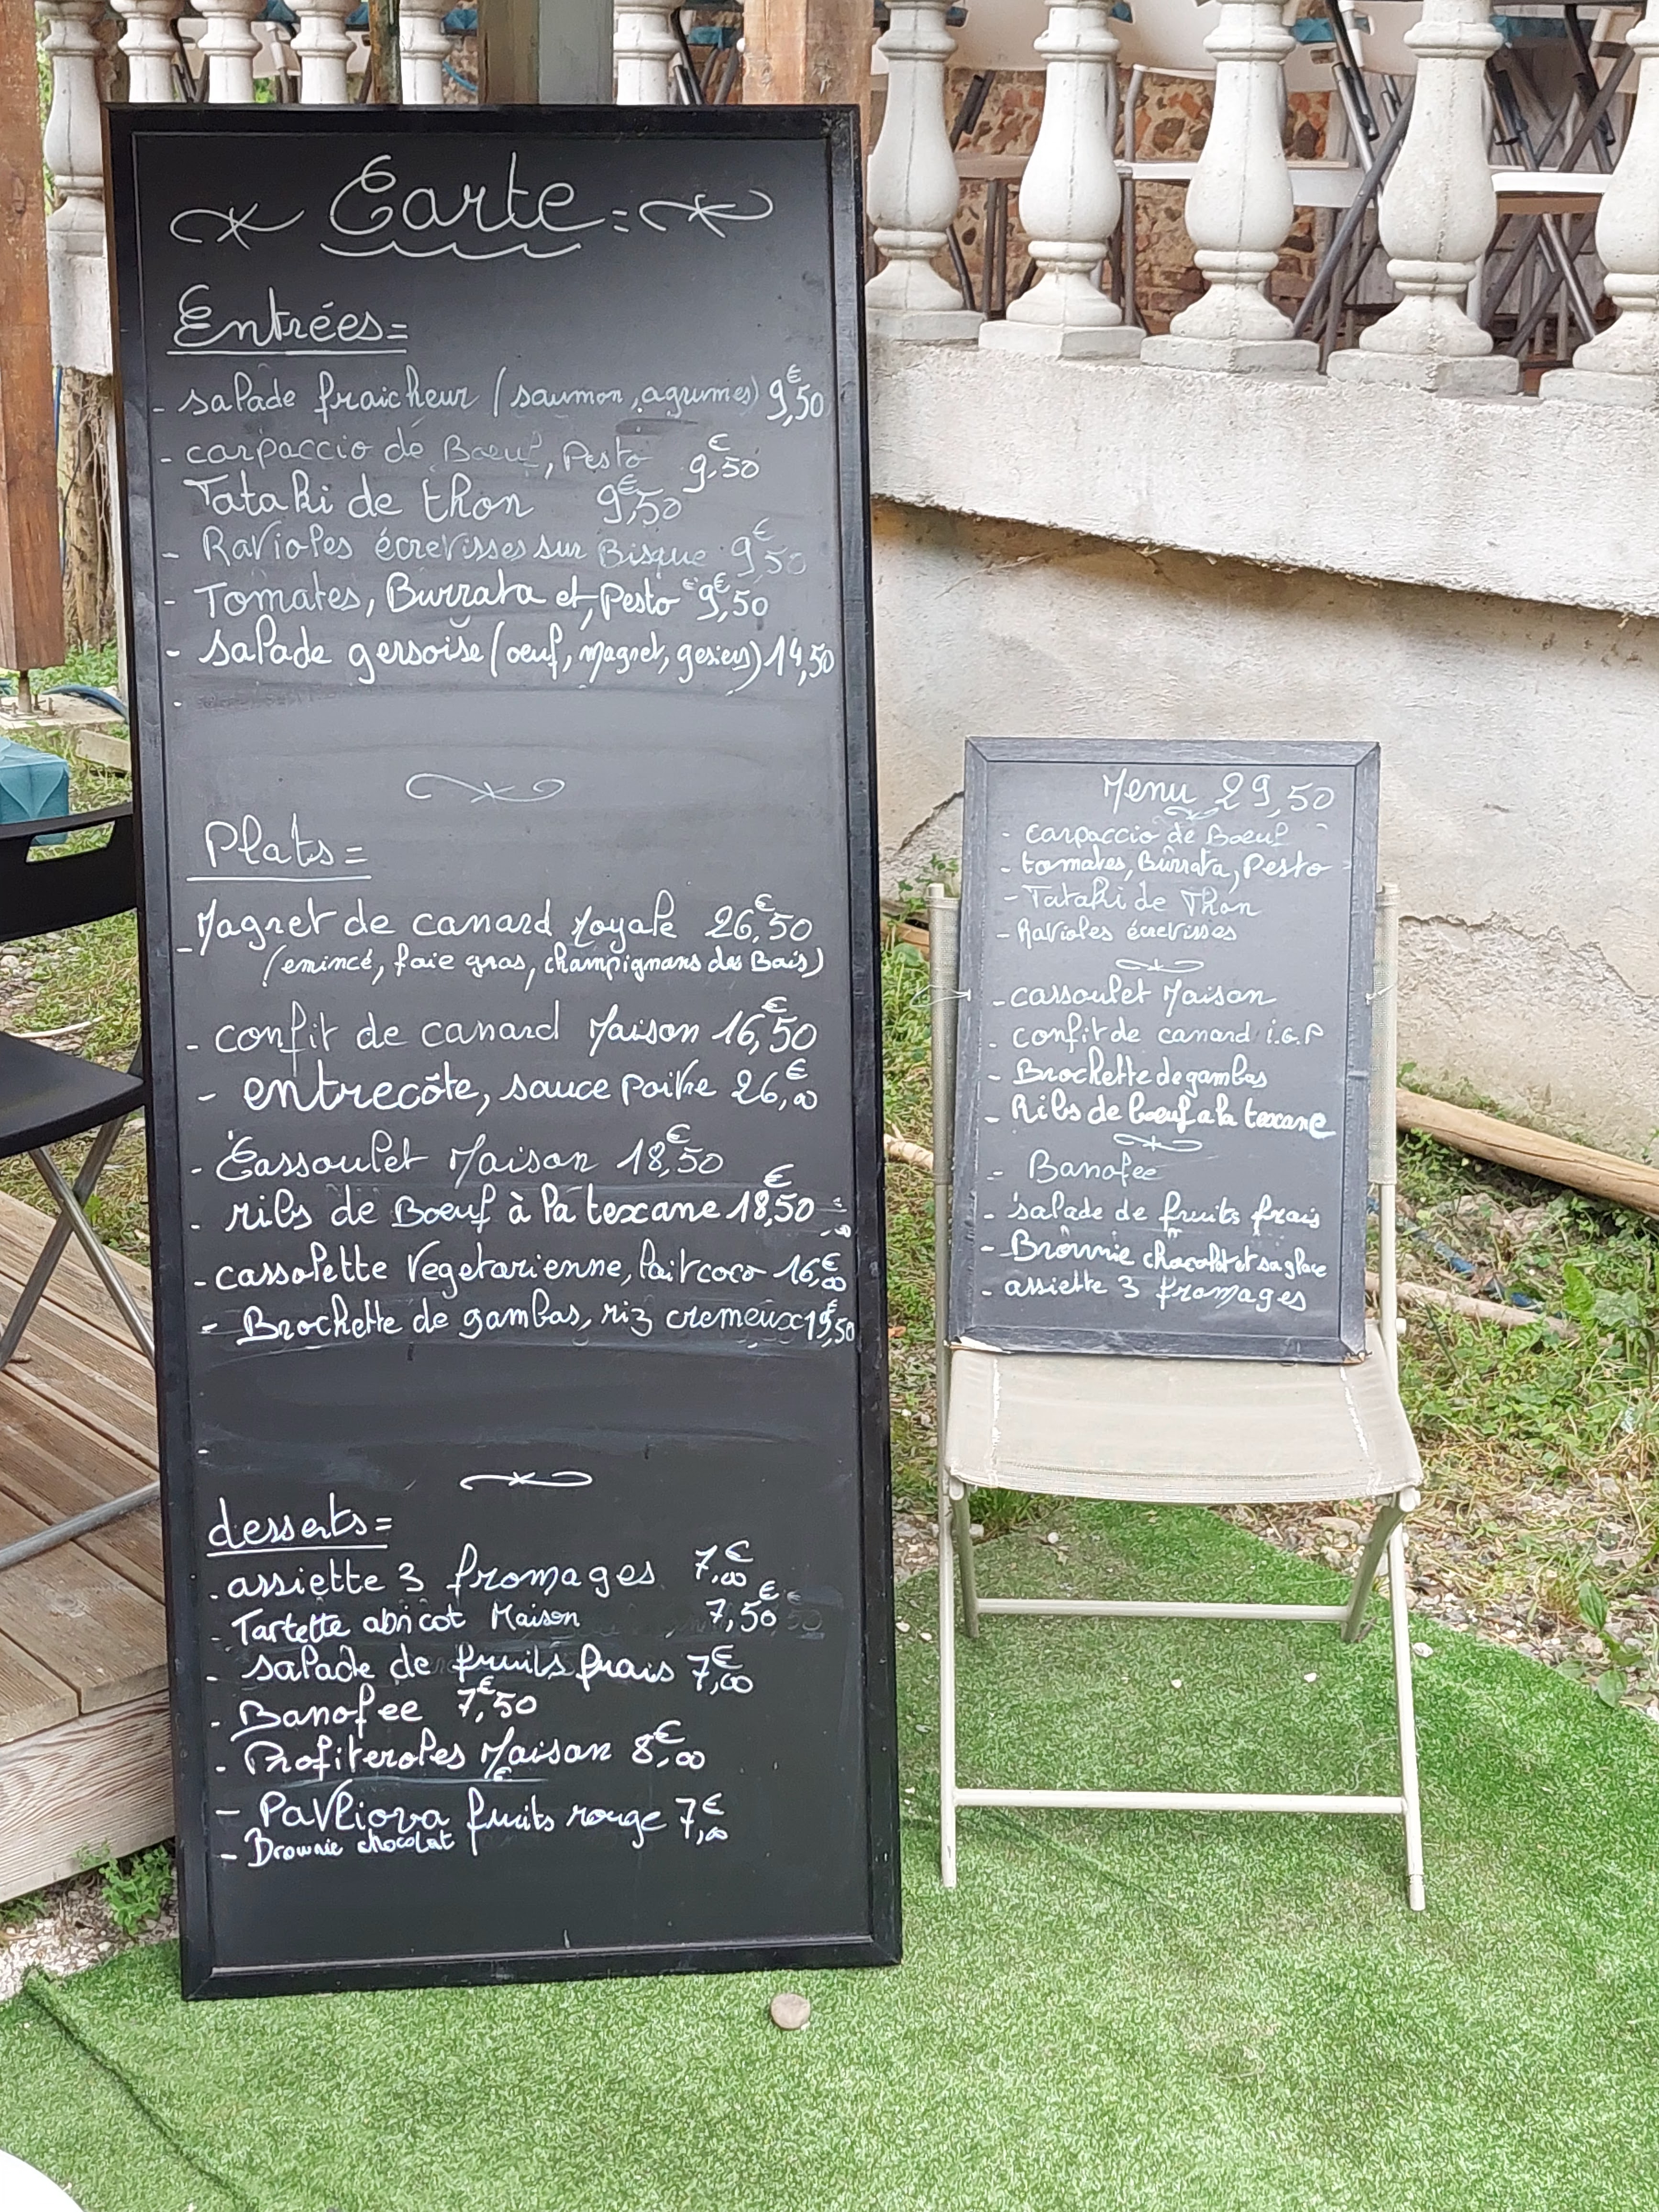 Carte =
Entrées =
- salade fraicheur (saumon, agrumes) 9,€50
- carpaccio de Boeuf, Pesto 9,€50
Tataki de thon 9,€50
- Ravioles écrevisses sur Bisque 9,€50
- Tomates, Burrata et, Pesto 9,€50
- salade gersoise (oeuf, magret, gesiers) 14,50
Plats =
- Magret de canard Royale 26,€50
(émincé, foie gras, champignons des Bois)
- confit de canard Maison 16,€50
- entrecôte, sauce poivre 26,€00
- Cassoulet Maison 18,€50
- ribs de Boeuf à la texane 18,€50
- cassolette Vegetarienne, lait coco 16,€00
- Brochette de gambas, riz cremeux 19,€50
desserts =
- assiette 3 fromages 7,€00
- Tartette abricot Maison 7,50€
- salade de fruits frais 7,€00
- Banofee 7,€50
- Profiteroles Maison 8,€00
- Pavliova fruits rouge 7,€00
- Brownie chocolat
Menu 29,50
- carpaccio de Boeuf
- tomates, Burrata, Pesto
- Tataki de Thon
- Ravioles écrevisses
- cassoulet Maison
- confit de canard i.G.P
- Brochette de gambas
- Ribs de boeuf a la texane
- Banofee
- salade de fruits frais
- Brownie chocolat et sa glace
- assiette 3 fromages